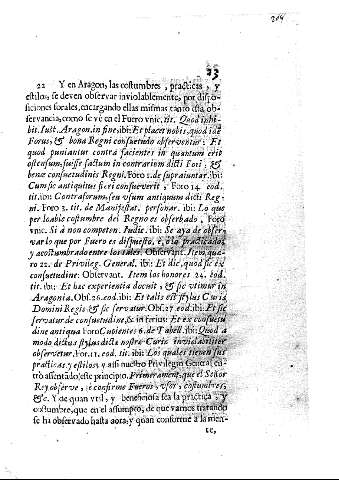 204
13
22 Y en Aragon, las costumbres, practicas, y
estilos, se deven observar inviolablemente, por dispo-
siciones forales, encargando ellas mismas tanto esta ob-
servancia, como se vè en el Fuero vnic. tit. Quod inhi-
bit. Iust. Aragon. in fine, ibi: Et placet nobis, quod ide
Forus, & bona Regni consuetudo observentur: Et
quod puniantur contra facientes in quantum erit
ostensum, fuisse factum in contrarium dicti Fori, &
bene consuetudinis Regni. Foro 1. de suprajuntar. ibi:
Cum sic antiquitus fieri consueverit, Foro 14. eod.
tit. ibi: Contraforum, seu vsum antiquum dicti Reg-
ni. Foro 3. tit. de Manifestat. personar. ibi: Lo que
per loable costumbre del Regno es observado, Foro
vnic. Si à non competen. Iudic. ibi: Se aya de obser-
var lo que por Fuero es dispuesto, è, ò lo practicado,
y acostumbrado entre forales. Observant. Item quæ-
ro 22. de Privileg. General. ibi: Et dic, quod sic est
consuetudine: Observant. Item los honores 24. eod.
tit. ibi: Et hac experientia docuit, & sic vtimur in
Aragonia. Obs. 26. eod. ibi: Et talis est stylus Curiæ
Domini Regis & sic servatur. Obs. 27. eod. ibi: Et sic
servatur de consuetudine, & inferius: Et ex consuetu-
dine antiqua Foro Cupientes 6. de Tabell. ibi: Quod a
modo dictus stylus dicta nostra Curia inviolabiliter
observetur. Foro 11. eod. tit. ibi: Los quales tienen sus
practicas, y estilos, y assi nuestro Privilegio General en-
trò assentado este principio. Primerament, que el Señor
Rey observe, è confirme Fueros, vsos, costumbres,
&c. Y de quan vtil, y beneficiosa sea la practica, y
costumbre, que en el assumpto, de que vamos tratando
se ha observado hasta aora, y quan conforme à la men-
te,